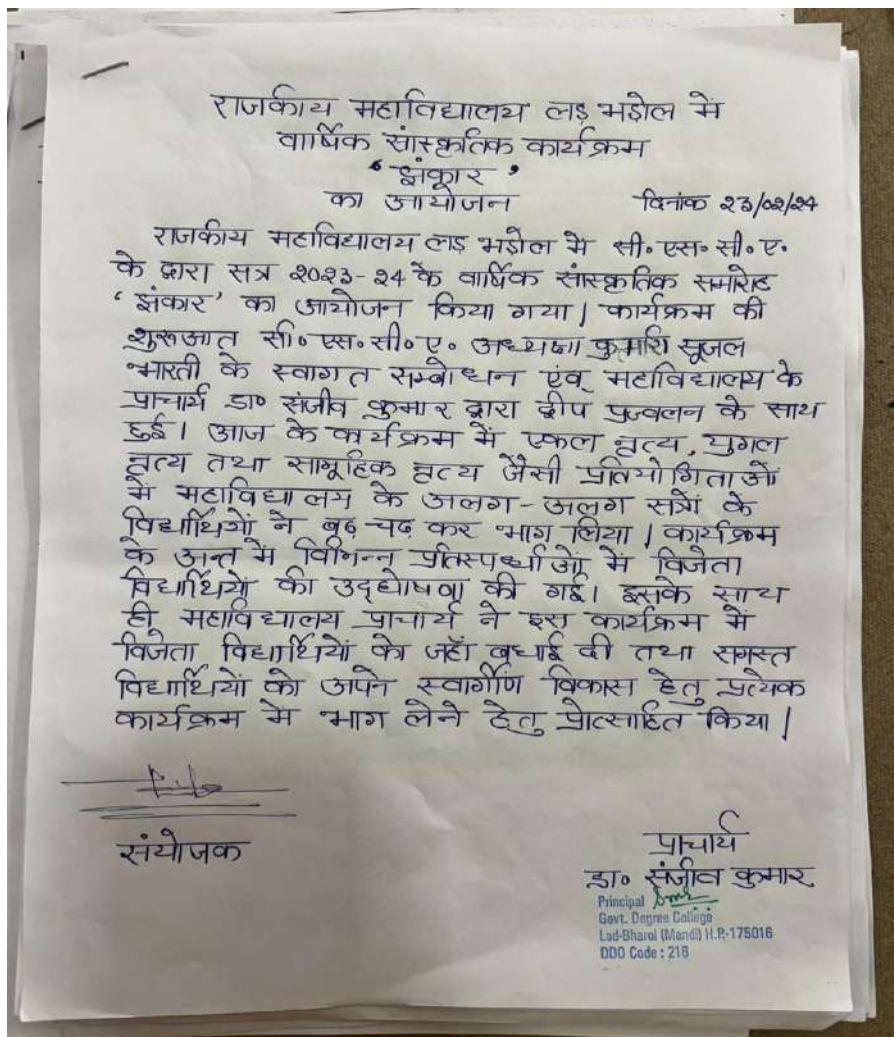 राजकीय महाविद्यालय लड़ भड़ोल में
वार्षिक सांस्कृतिक कार्यक्रम
‘झंकार’
का आयोजन
दिनांक २३/०२/२४
राजकीय महाविद्यालय लड़ भड़ोल में सी॰एस॰सी॰ए॰
के द्वारा सत्र २०२३-२४ के वार्षिक सांस्कृतिक समारोह
‘झंकार’ का आयोजन किया गया। कार्यक्रम की
शुरूआत सी॰एस॰सी॰ए॰ अध्यक्षा कुमारी सूजल
भारती के स्वागत सम्बोधन एंव् महाविद्यालय के
प्राचार्य डा॰ संजीव कुमार द्वारा दीप प्रज्वलन के साथ
हुई। आज के कार्यक्रम में एकल नृत्य, युगल
नृत्य तथा सामूहिक नृत्य जैसी प्रतियोगिताओं
में महाविद्यालय के अलग-अलग सत्रों के
विद्यार्थियों ने बढ़-चढ़ कर भाग लिया। कार्यक्रम
के अन्त में विभिन्न प्रतिस्पर्धाओं में विजेता
विद्यार्थियों की उद्घोषणा की गई। इसके साथ
ही महाविद्यालय प्राचार्य ने इस कार्यक्रम में
विजेता विद्यार्थियों को जहाँ बधाई दी तथा समस्त
विद्यार्थियों को अपने स्वार्गीण विकास हेतु प्रत्येक
कार्यक्रम में भाग लेने हेतु प्रोत्साहित किया।
संयोजक
प्राचार्य
डा॰ संजीव कुमार
Principal
Govt. Degree College
Lad-Bharol (Mandi) H.P.-175016
DDO Code : 216